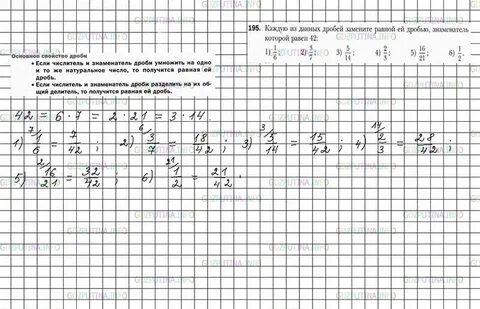 195. Каждую из данных дробей замените равной ей дробью, знаменатель
которой равен 42:
1) 1/6; 2) 3/7; 3) 5/14; 4) 2/3; 5) 16/21; 6) 1/2.
Основное свойство дроби
• Если числитель и знаменатель дроби умножить на одно
и то же натуральное число, то получится равная ей
дробь.
• Если числитель и знаменатель дроби разделить на их об-
щий делитель, то получится равная ей дробь.
42 = 6·7 = 2·21 = 3·14.
1) 7/ 1/6 = 7/42 ; 2) 6/ 3/7 = 18/42 ; 3) 3/ 5/14 = 15/42 ; 4) 14/ 2/3 = 28/42 ;
5) 2/ 16/21 = 32/42 ; 6) 21/ 1/2 = 21/42 .
GDZPUTINA.INFO